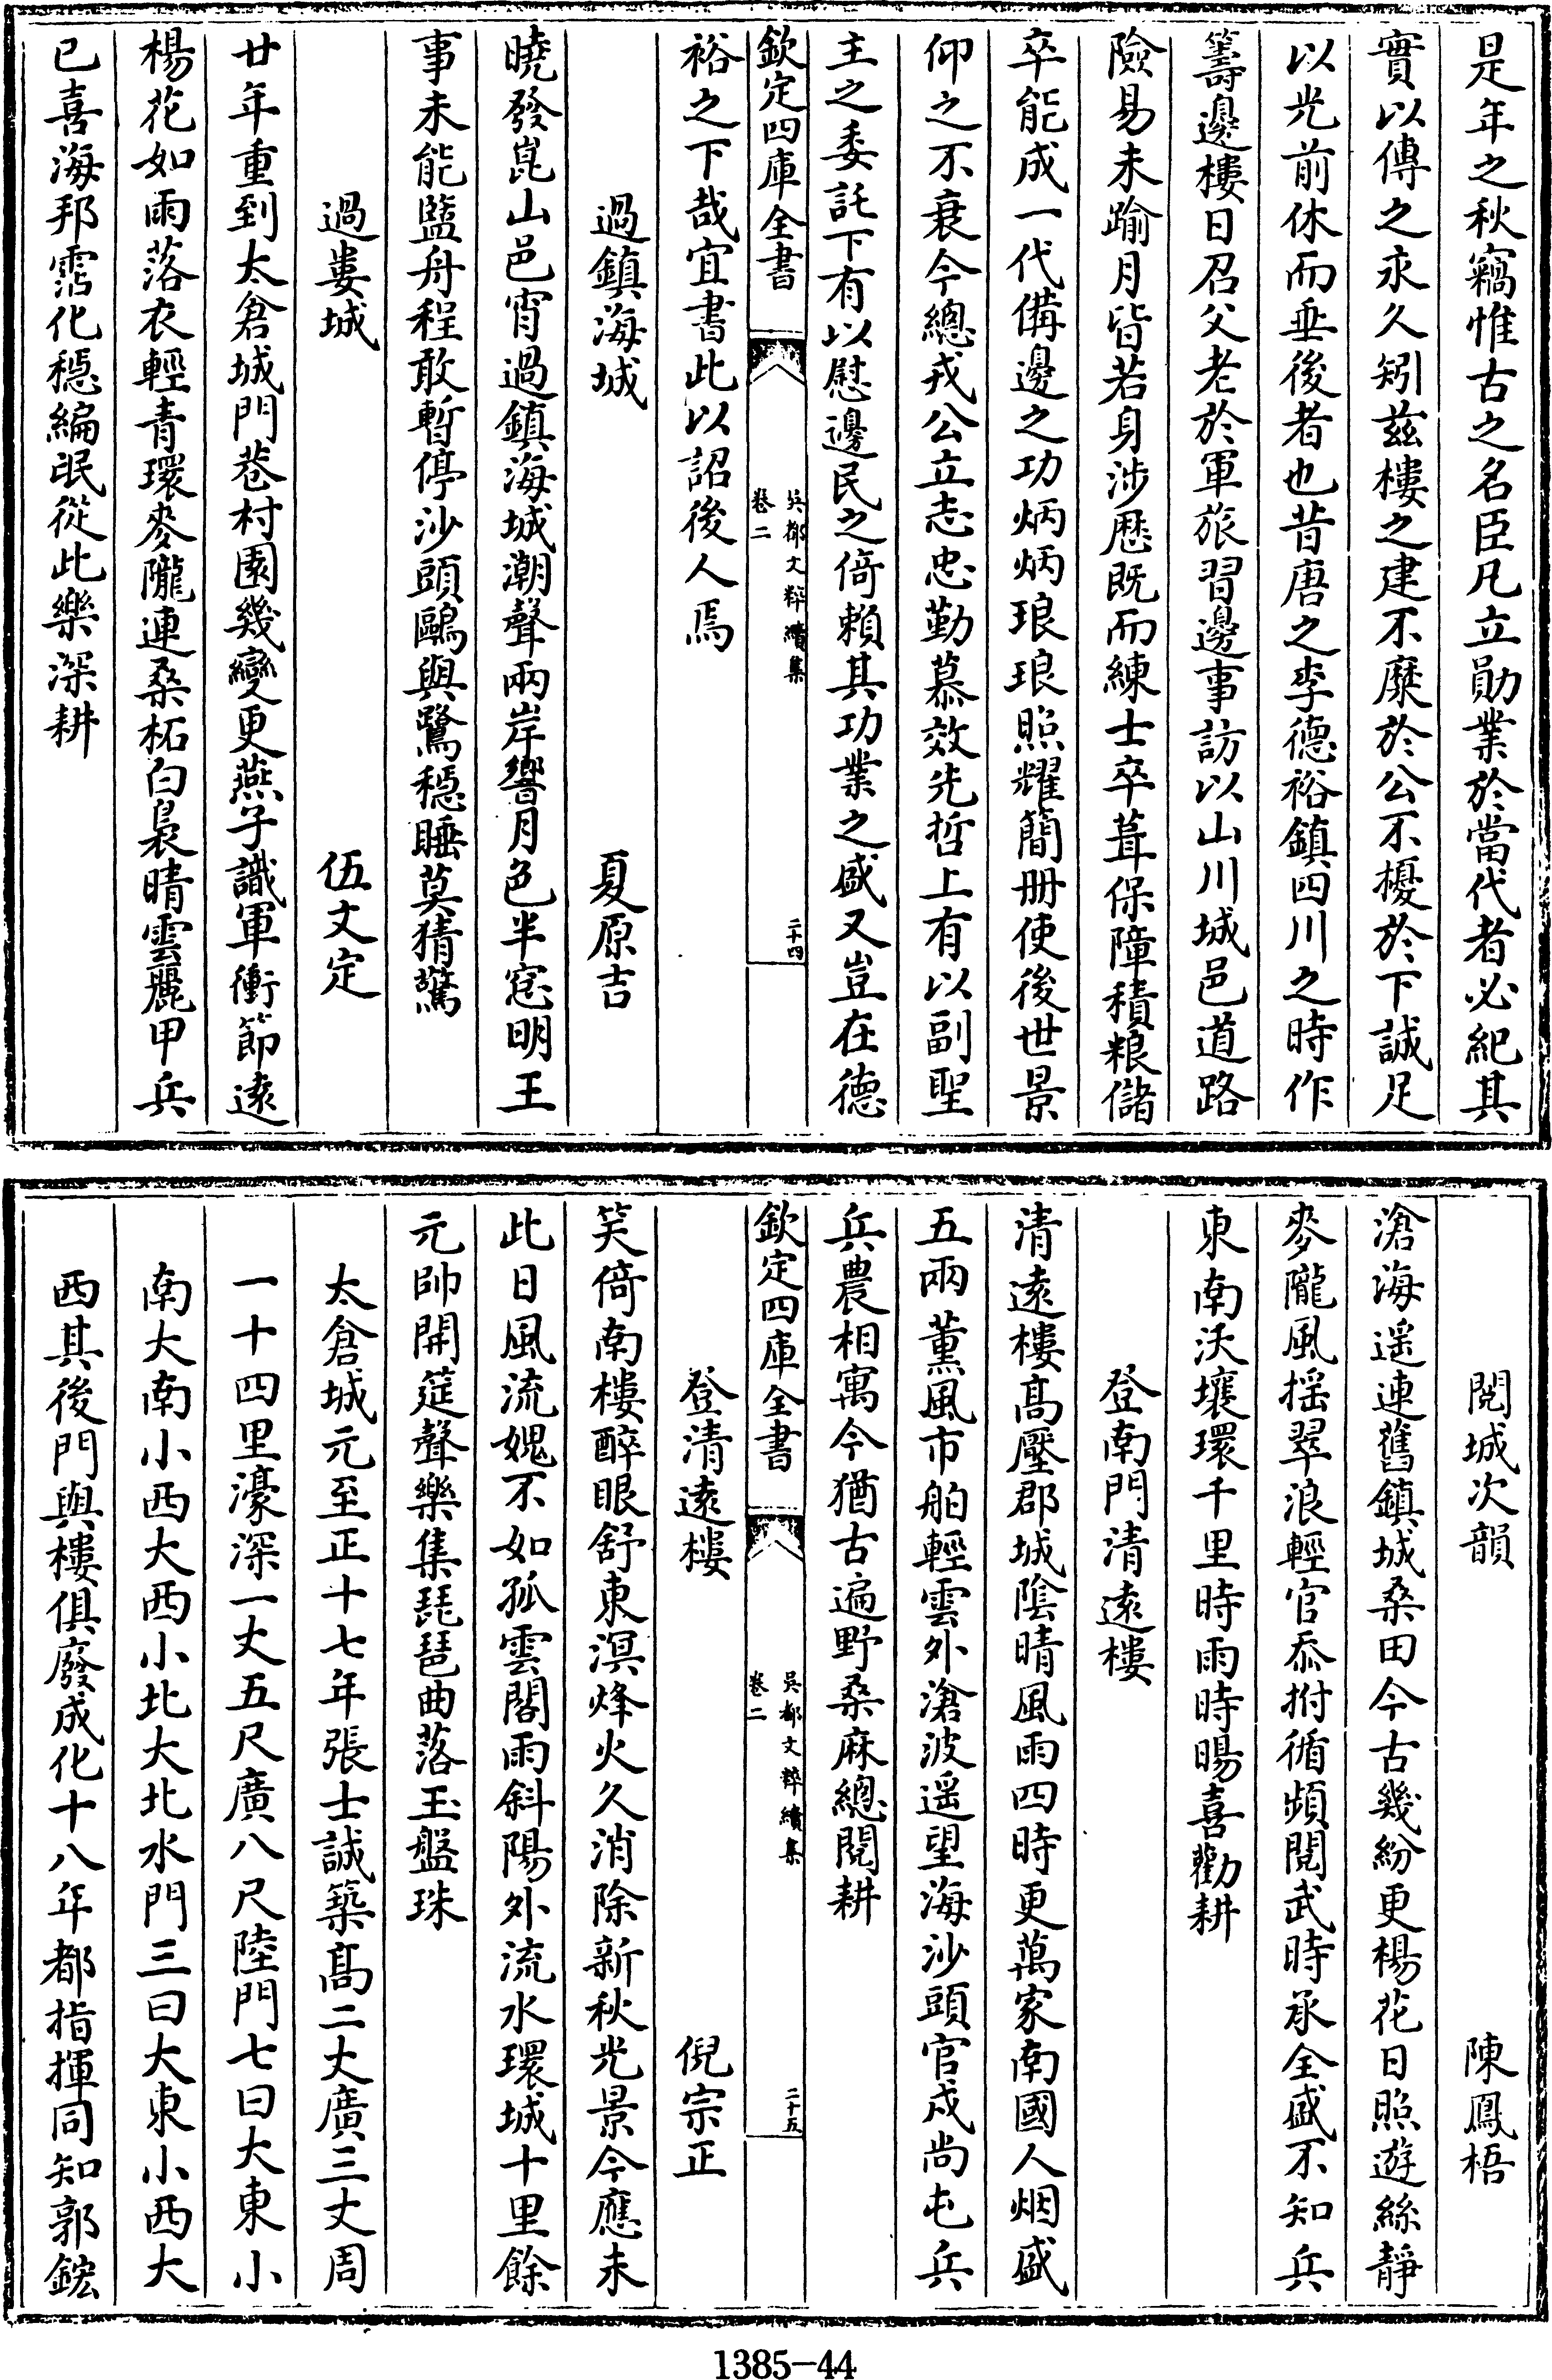 是年之秋竊惟古之名臣凡立勛業於當代者必紀其
實以傳之永久矧兹樓之建不糜於公不擾於下誠足
以光前休而垂後者也昔唐之李德裕鎮四川之時作
籌邊樓日召父老於軍旅習邊事訪以山川城邑道路
險易未踰月皆若身涉歴既而練士卒葺保障積粮儲
卒能成一代備邊之功炳炳琅琅照耀簡册使後世景
仰之不衰今總戎公立志忠勤慕效先哲上有以副聖
主之委託下有以慰邊民之倚賴其功業之盛又豈在德
欽定四庫全書
吳都文粹續集
卷二
二十四
裕之下哉宜書此以詔後人焉
過鎮海城 夏原吉
曉發崑山邑宵過鎮海城潮聲兩岸響月色半窓明王
事未能盬舟程敢暫停沙頭鷗與鷺穩睡莫猜驚
過婁城 伍文定
廿年重到太倉城門巷村園幾變更燕子識軍衝節逺
楊花如雨落衣輕青環麥隴連桑柘白裊晴雲麗甲兵
已喜海邦霑化穩編氓從此樂深耕
閲城次韻 陳鳳梧
滄海遥連舊鎮城桑田今古幾紛更楊花日照遊絲靜
麥隴風揺翠浪輕官忝拊循頻閲武時承全盛不知兵
東南沃壤環千里時雨時暘喜勸耕
登南門清逺樓
清逺樓髙壓郡城陰晴風雨四時更萬家南國人烟盛
五兩薰風市舶輕雲外滄波遥望海沙頭官戍尚屯兵
兵農相寓今猶古遍野桑麻總閲耕
欽定四庫全書
吳都文粹續集
卷二
二十五
登清逺樓 倪宗正
笑倚南樓醉眼舒東溟烽火久消除新秋光景今應未
此日風流媿不如孤雲閣雨斜陽外流水環城十里餘
元帥開筵聲樂集琵琶曲落玉盤珠
太倉城元至正十七年張士誠築髙二丈廣三丈周
一十四里濠深一丈五尺廣八尺陸門七曰大東小
南大南小西大西小北大北水門三曰大東小西大
西其後門與樓俱廢成化十八年都指揮同知郭鋐
1385-44